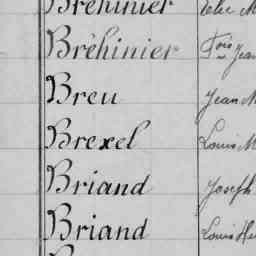 Bréhinier
Bréhinier Fois Jean
Breu Jean M
Brexel Louis M
Briand Joseph
Briand Louis He